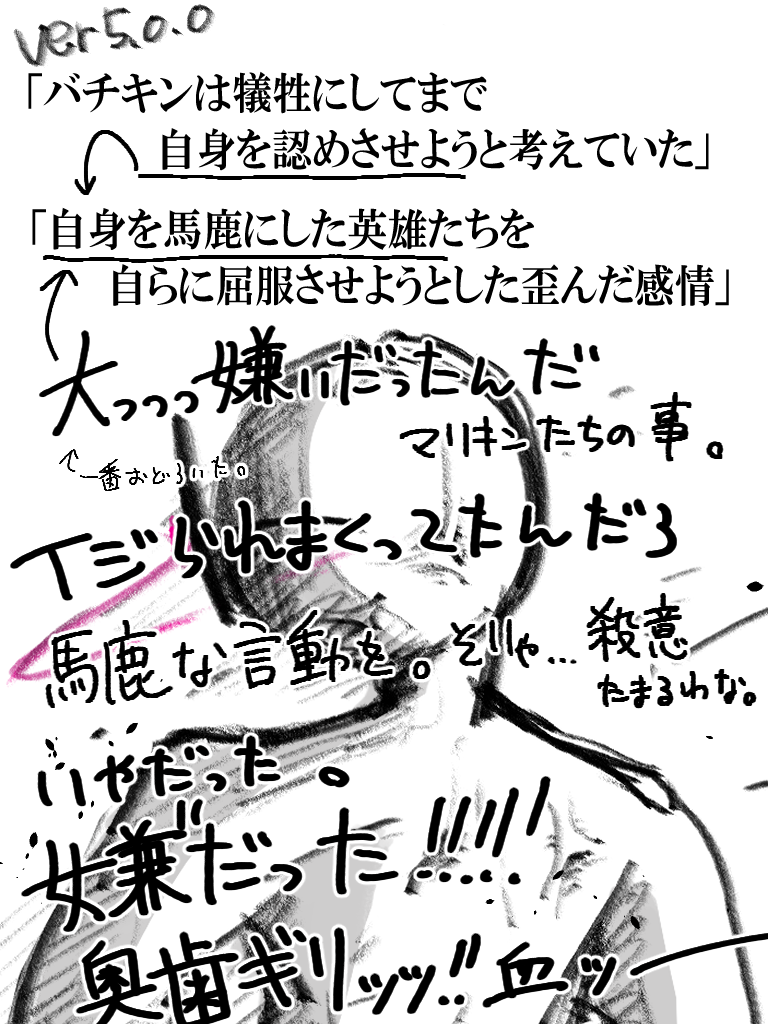 ver5.0.0
「バチキンは犠牲にしてまで
自身を認めさせようと考えていた」
「自身を馬鹿にした英雄たちを
自らに屈服させようとした歪んだ感情」
大っっっ嫌いだったんだ
マリキンたちの事。
一番おどろいた。
イジられまくってたんだろ
馬鹿な言動を。そりゃ…殺意
たまるわな。
いやだった。
嫌だった!!!!!
奥歯ギリッッ!!血ッ―